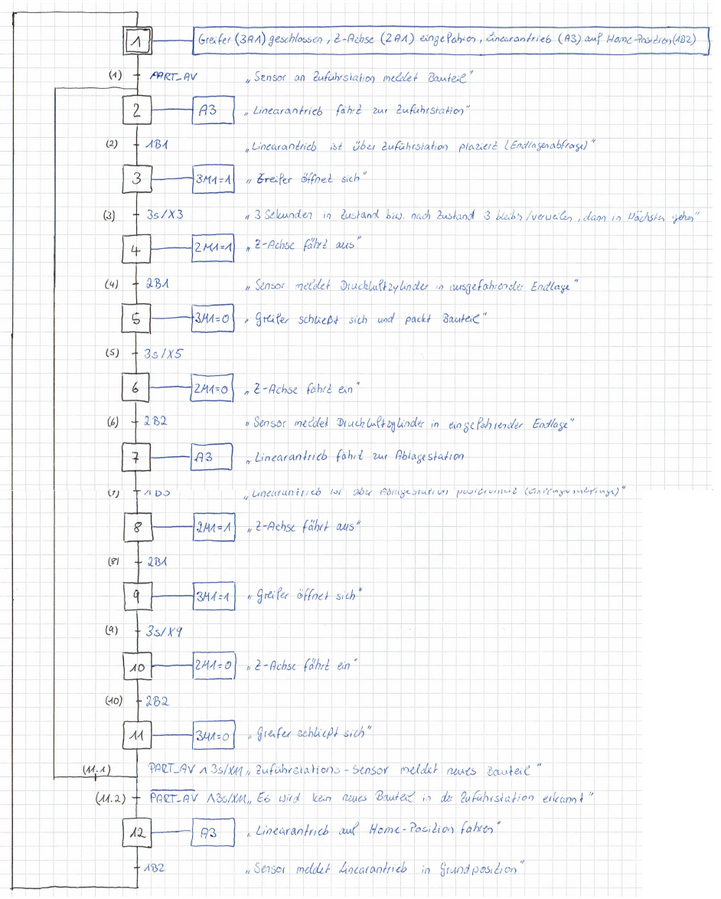 1 Greifer (3A1) geschlossen, Z-Achse (2A1) eingefahren, Linearantrieb (A3) auf Home-Position (1B2)
(1) PART_AV „Sensor an Zuführstation meldet Bauteil“
2 A3 „Linearantrieb fährt zur Zuführstation“
(2) 1B1 „Linearantrieb ist über Zuführstation plaziert (Endlagenabfrage)“
3 3M1=1 „Greifer öffnet sich“
(3) 3s/X3 „3 Sekunden in Zustand bzw. nach Zustand 3 bleibt/verweilen, dann in Nächsten gehen“
4 2M1=1 „Z-Achse fährt aus“
(4) 2B1 „Sensor meldet Druckluftzylinder in ausgefahrender Endlage“
5 3M1=0 „Greifer schließt sich und packt Bauteil“
(5) 3s/X5
6 2M1=0 „Z-Achse fährt ein“
(6) 2B2 „Sensor meldet Druckluftzylinder in eingefahrender Endlage“
7 A3 „Linearantrieb fährt zur Ablagestation
(7) 1B3 „Linearantrieb ist über Ablagestation positioniert (Endlagenabfrage)“
8 2M1=1 „Z-Achse fährt aus“
(8) 2B1
9 3M1=1 „Greifer öffnet sich“
(9) 3s/X9
10 2M1=0 „Z-Achse fährt ein“
(10) 2B2
11 3M1=0 „Greifer schließt sich“
(11.1) PART_AV ∧ 3s/X11 „Zuführstations-Sensor meldet neues Bauteil“
(11.2) P̅A̅R̅T̅_̅A̅V̅ ∧ 3s/X11 „Es wird kein neues Bauteil in der Zuführstation erkannt“
12 A3 „Linearantrieb auf Home-Position fahren“
1B2 „Sensor meldet Linearantrieb in Grundposition“